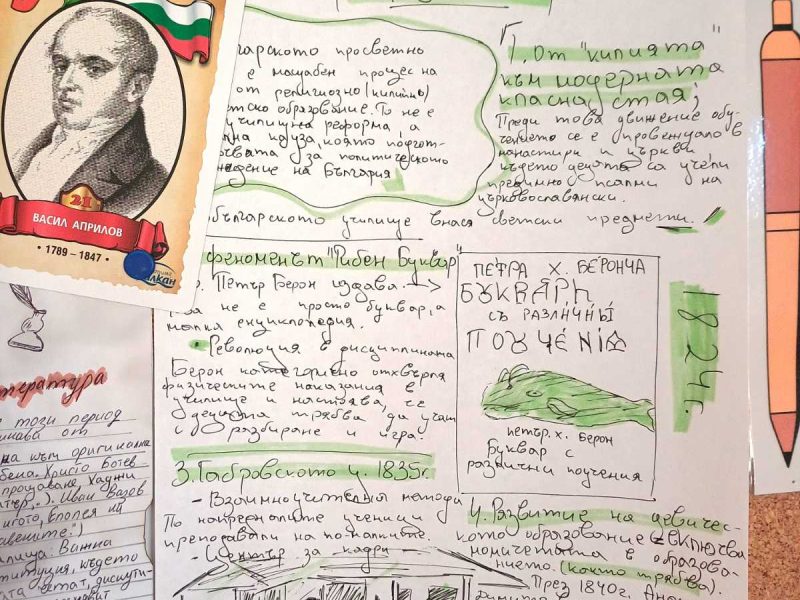 ВАСИЛ АПРИЛОВ
21
• 1789 – 1847 •
просветно
е мащабен процес на
от религиозно (килийно)
образование. То не е
реформа, а
кауза, която подгот-
за политическото
на България
1. От "килията"
към модерната
класна стая;
Преди това движение обу-
чението се е провеждало в
манастири и църкви
където децата са учели
предимно псалми на
църковославянски.
българското училище внася светски предмети.
феноменът "Рибен Буквар"
Петър Берон издава
не е просто буквар, а
малка енциклопедия.
• Революция в дисциплината
Берон категорично отхвърля
физическите наказания в
училище и настоява, че
децата трябва да учат
с разбиране и игра.
ПЕТРА Х. БЕРОНЧА
БУКВАРЬ
СЪ РАЗЛИЧНЫ
ПОУЧЕНІѦ
петър. х. Берон
Буквар с
различни поучения
1824г.
3. Габровското у. 1835г.
- Взаимноучителни методи
По напредналите ученици
преподавали на по-малките.
- Център за кадри -
4. Развитие на девичес-
кото образование - включва
момичетата в образова-
нието. (както трябва).
През 1840г.
този период
от
към оригинална
Христо Ботев
Хаджи
Иван Вазов
Важна
където